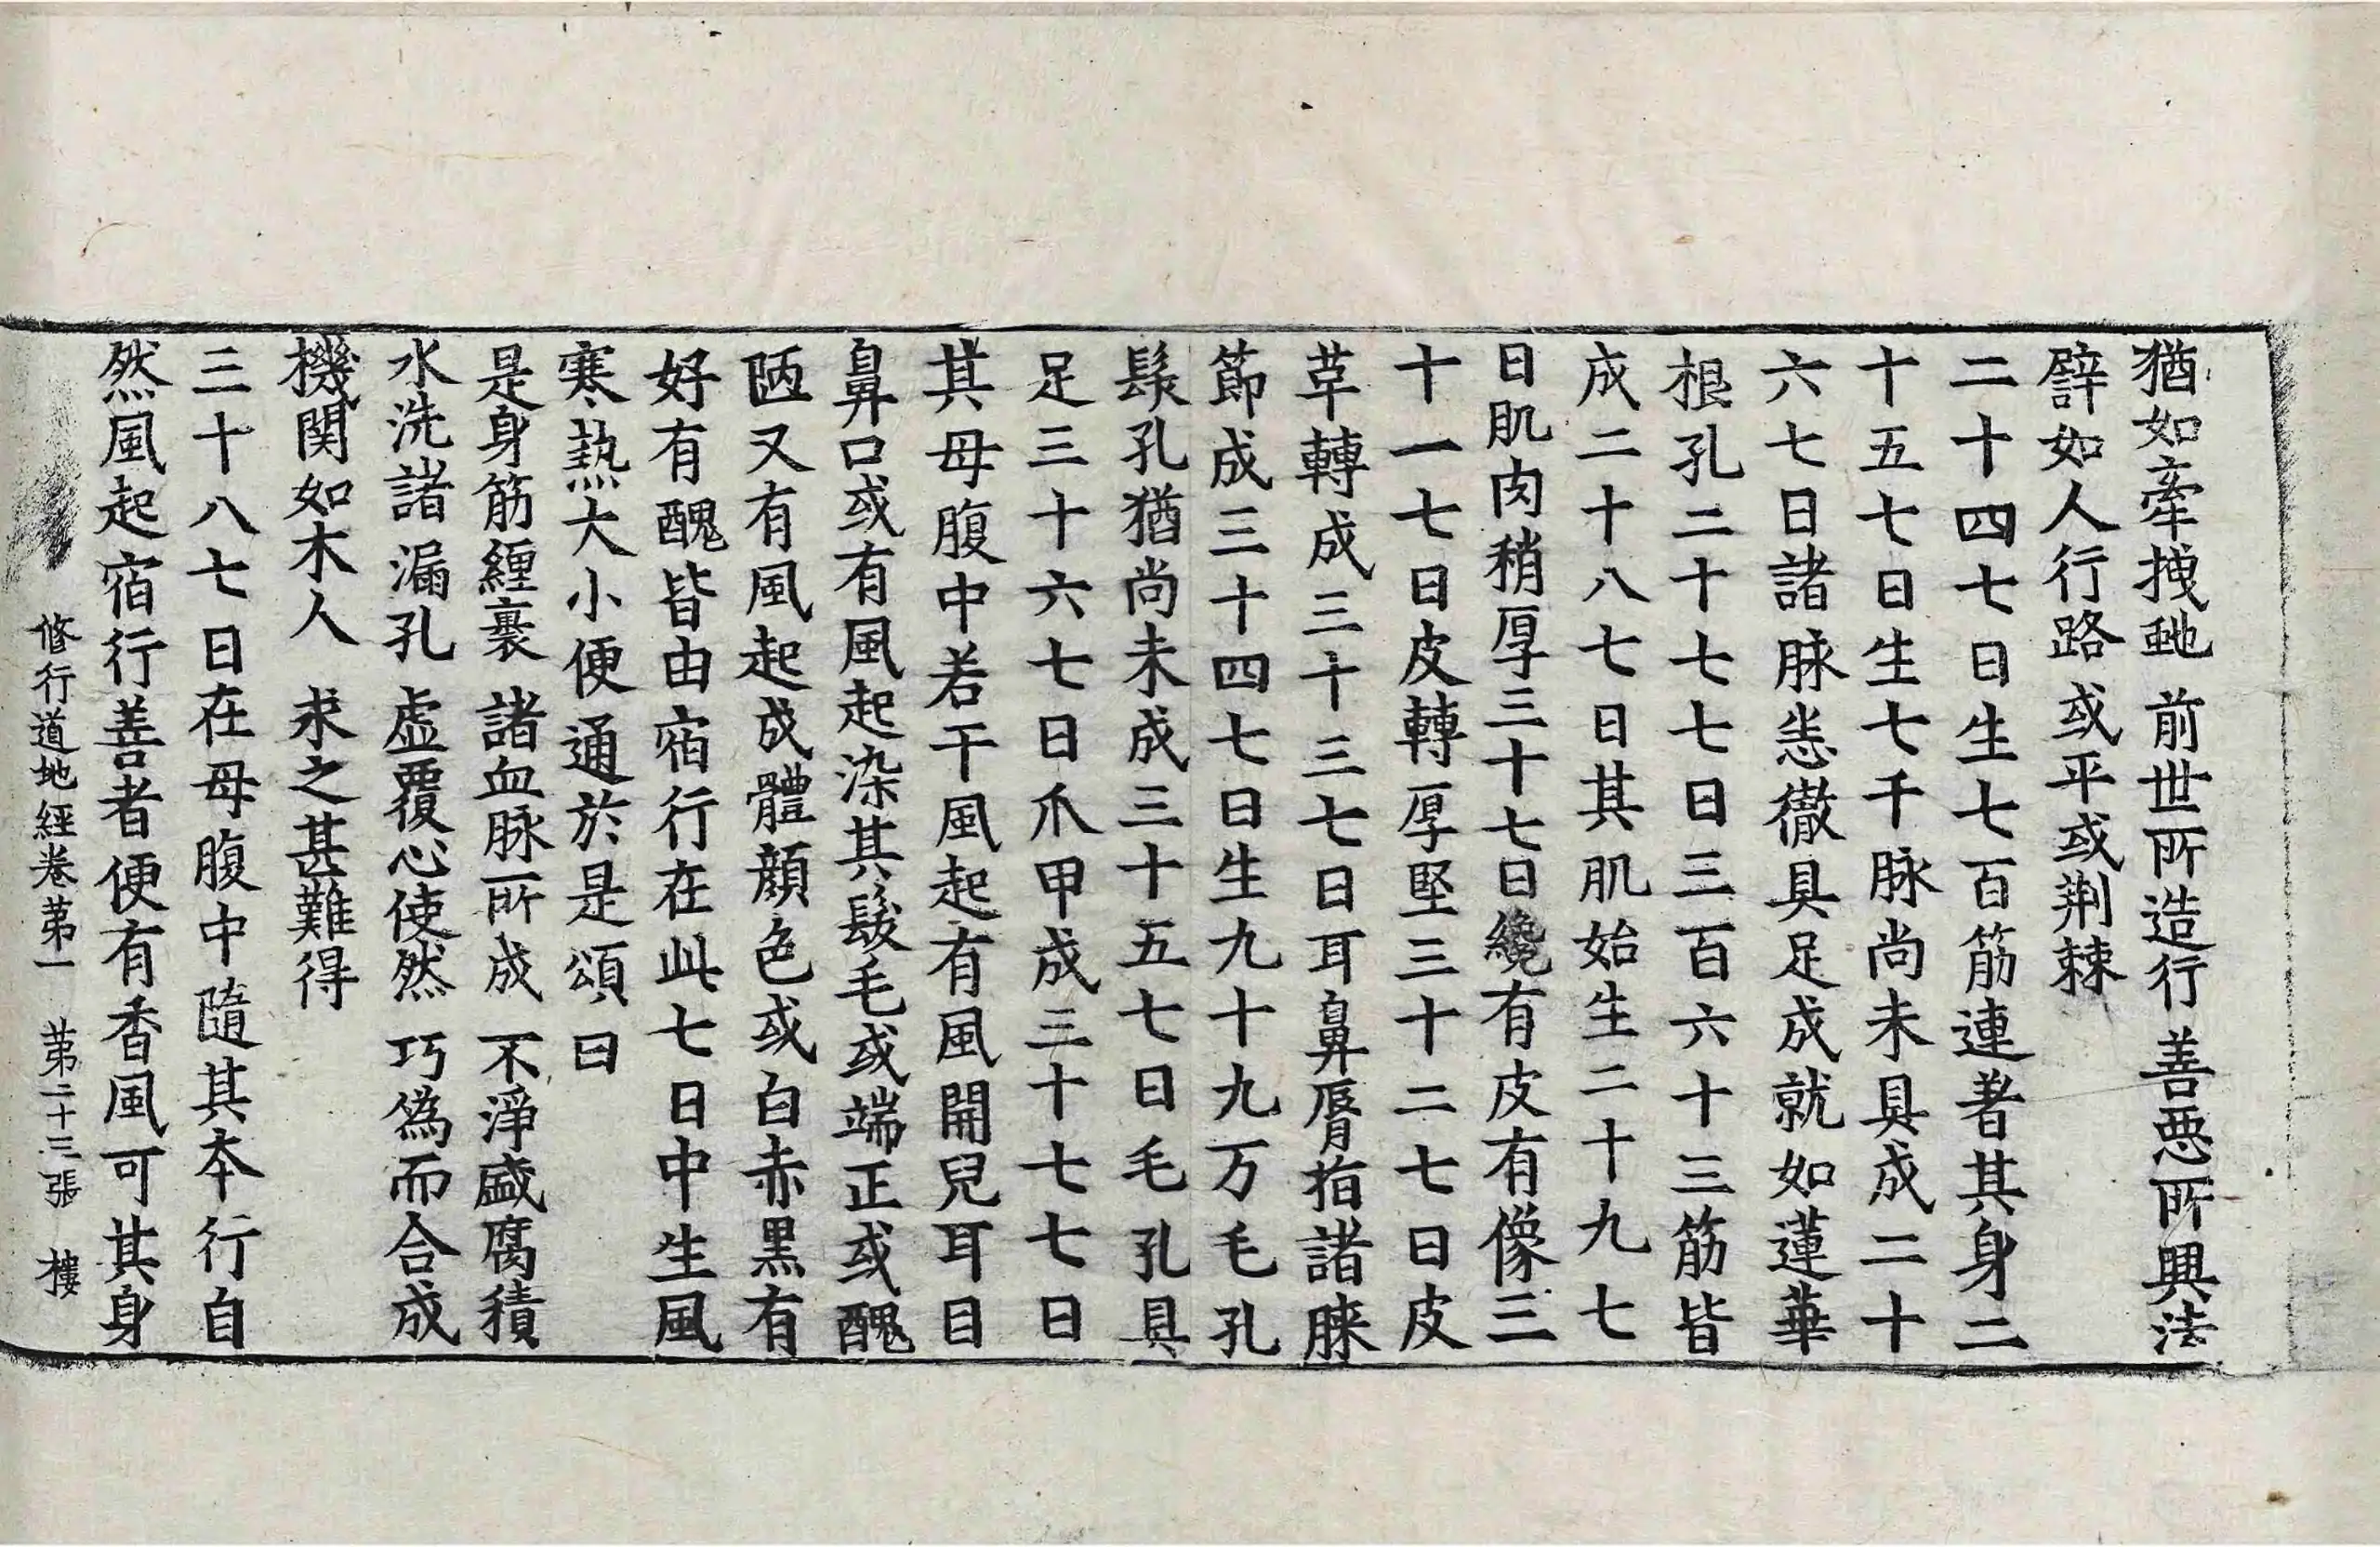 猶如牽拽𧉮 前世所造行 善惡所興法
譬如人行路 或平或荆棘
二十四七日生七百筋連著其身二
十五七日生七千脉尚未具成二十
六七日諸脉悉徹具足成就如蓮華
根孔二十七七日三百六十三筋皆
成二十八七日其肌始生二十九七
日肌肉稍厚三十七日纔有皮有像三
十一七日皮轉厚堅三十二七日皮
革轉成三十三七日耳鼻脣指諸膝
節成三十四七日生九十九万毛孔
髮孔猶尚未成三十五七日毛孔具
足三十六七日爪甲成三十七七日
其母腹中若干風起有風開兒耳目
鼻口或有風起染其髮毛或端正或醜
陋又有風起成體顔色或白赤黑有
好有醜皆由宿行在此七日中生風
寒熱大小便通於是頌曰
是身筋纏裹 諸血脉所成 不淨盛腐積
水洗諸漏孔 虛覆心使然 巧爲而合成
機関如木人 求之甚難得
三十八七日在母腹中隨其本行自
然風起宿行善者便有香風可其身
修行道地經卷苐一 苐二十三張 樓